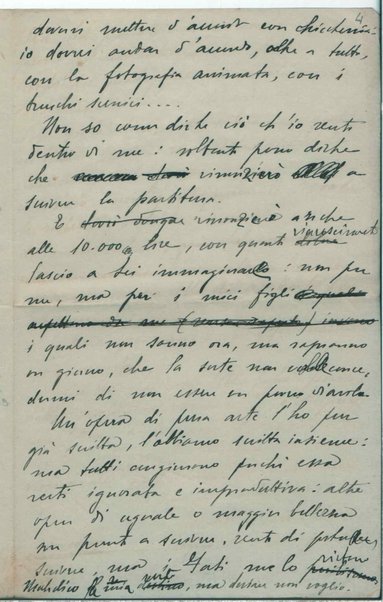 4
dovrei mettere d'accordo con chicchessia:
io dovrei andar d'accordo, oltre a tutto,
con la fotografia animata, con i
trucchi scenici....
Non so come dirle ciò ch'io senta
dentro di me: soltanto posso dirle
che rinunzierò a
scriver la partitura.
E dovrò dunque rinunziare anche
alle 10.000 lire, con quanti rincrescimenti
lascio a Lei immaginarlo: non per
me, ma per i miei figli
aspettano da me
i quali non sanno ora, ma sapranno
un giorno, che la sorte non volle conce
dermi di non essere un povero diavolo.
Un'opera di pura arte l'ho pur
già scritta, l'abbiamo scritta insieme:
ma tutti congiurano perchè essa
resti ignorata e improduttiva: altre
opere di eguale o maggior bellezza
son pronto a scrivere, sento di poter
scrivere, ma i fati me lo
Maledico la mia ma destare non voglio.